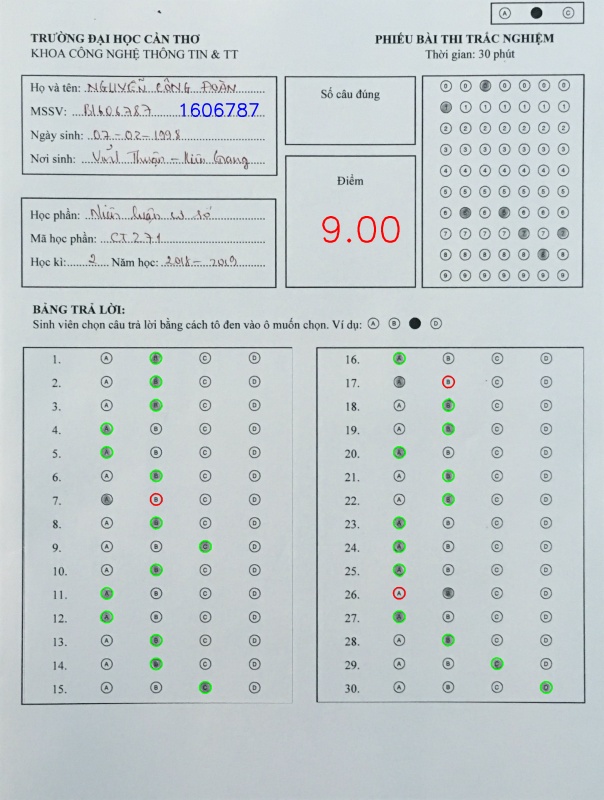 Ⓐ ● Ⓒ
TRƯỜNG ĐẠI HỌC CẦN THƠ
KHOA CÔNG NGHỆ THÔNG TIN & TT
PHIẾU BÀI THI TRẮC NGHIỆM
Thời gian: 30 phút
Họ và tên: NGUYỄN CÔNG ĐOÀN
MSSV: B1606787 1606787
Ngày sinh: 07-02-1998
Nơi sinh: Vĩnh Thuận - Kiên Giang
Học phần: Niên luận cơ sở
Mã học phần: CT271
Học kì: 2 Năm học: 2018 - 2019
Số câu đúng
Điểm
9.00
0 0 0 0 0 0 0
1 1 1 1 1 1 1
2 2 2 2 2 2 2
3 3 3 3 3 3 3
4 4 4 4 4 4 4
5 5 5 5 5 5 5
6 6 6 6 6 6 6
7 7 7 7 7 7 7
8 8 8 8 8 8 8
9 9 9 9 9 9 9
BẢNG TRẢ LỜI:
Sinh viên chọn câu trả lời bằng cách tô đen vào ô muốn chọn. Ví dụ: Ⓐ Ⓑ ● Ⓓ
1. A B C D
2. A B C D
3. A B C D
4. A B C D
5. A B C D
6. A B C D
7. A B C D
8. A B C D
9. A B C D
10. A B C D
11. A B C D
12. A B C D
13. A B C D
14. A B C D
15. A B C D
16. A B C D
17. A B C D
18. A B C D
19. A B C D
20. A B C D
21. A B C D
22. A B C D
23. A B C D
24. A B C D
25. A B C D
26. A B C D
27. A B C D
28. A B C D
29. A B C D
30. A B C D